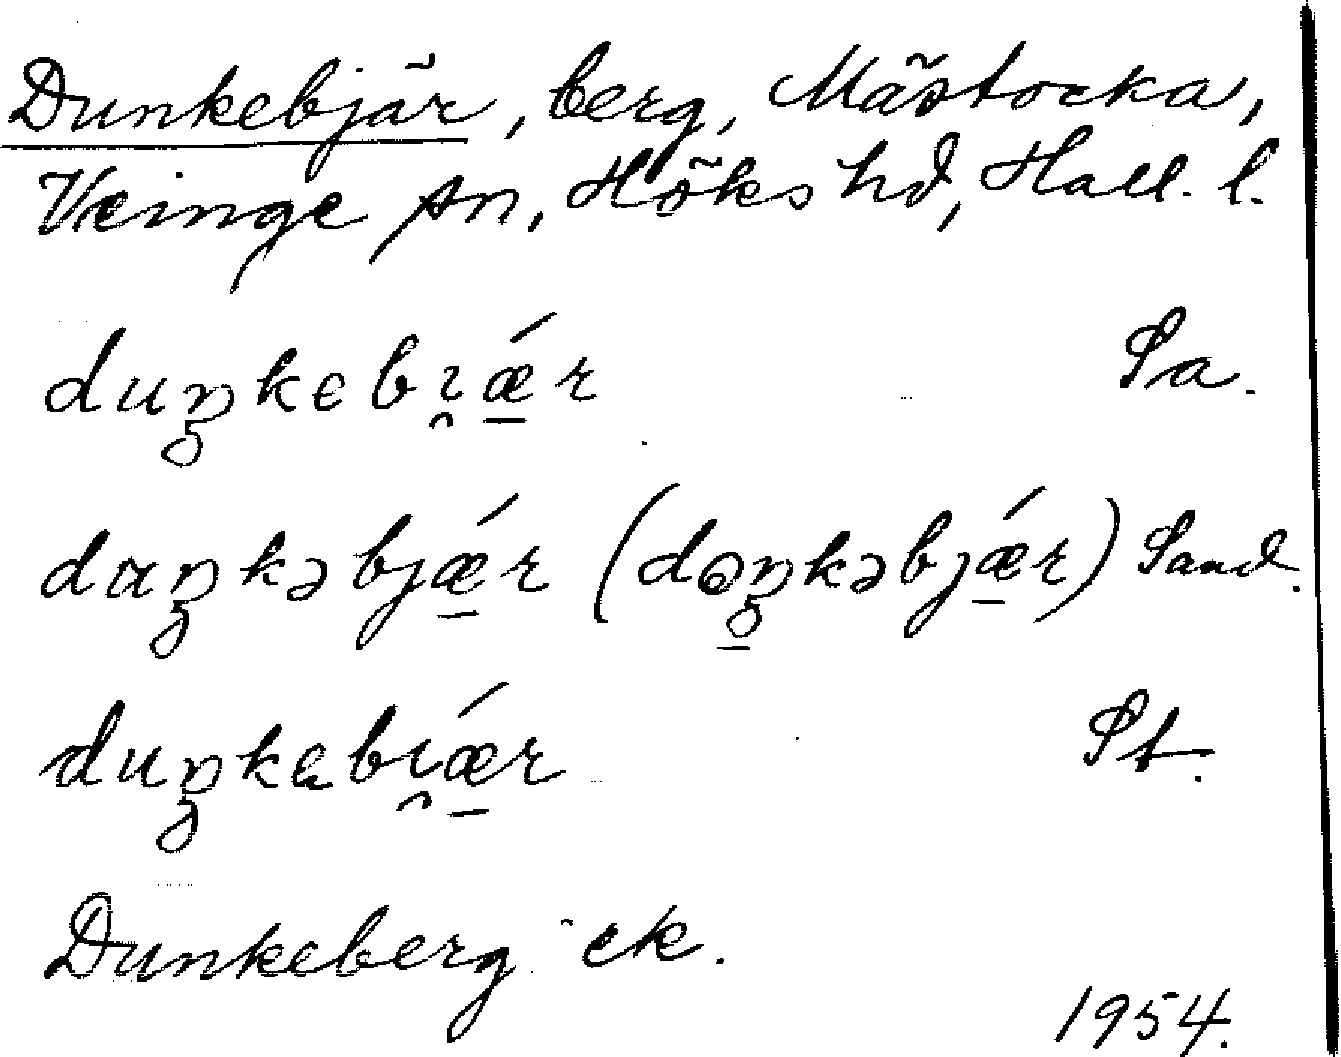 Dunkebjär, berg, Mästocka,
Veinge sn, Höks hd, Hall. l.
duŋkebi̯ǽ̠r Sa.
duŋkəbjǽ̠r (doŋ̠kəbjǽ̠r) Sand.
duŋkebi̯ǽ̠r St.
Dunkeberg ek.
1954.